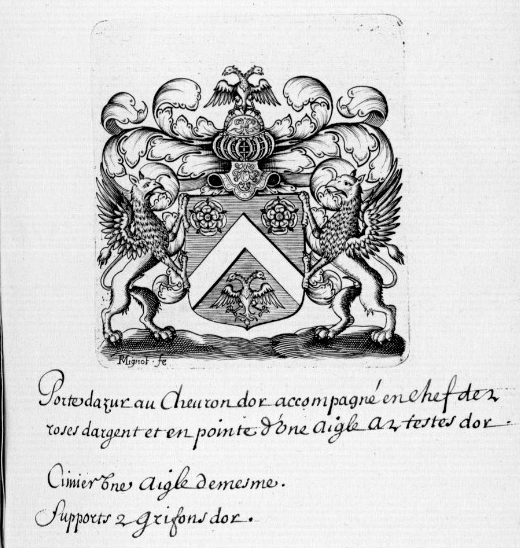 Mignot · fe
Porte dazur au Cheuron dor accompagné en chef de 2
roses dargent et en pointe d'vne aigle a 2 testes dor.
Cimier vne aigle demesme.
Supports 2 grifons dor.